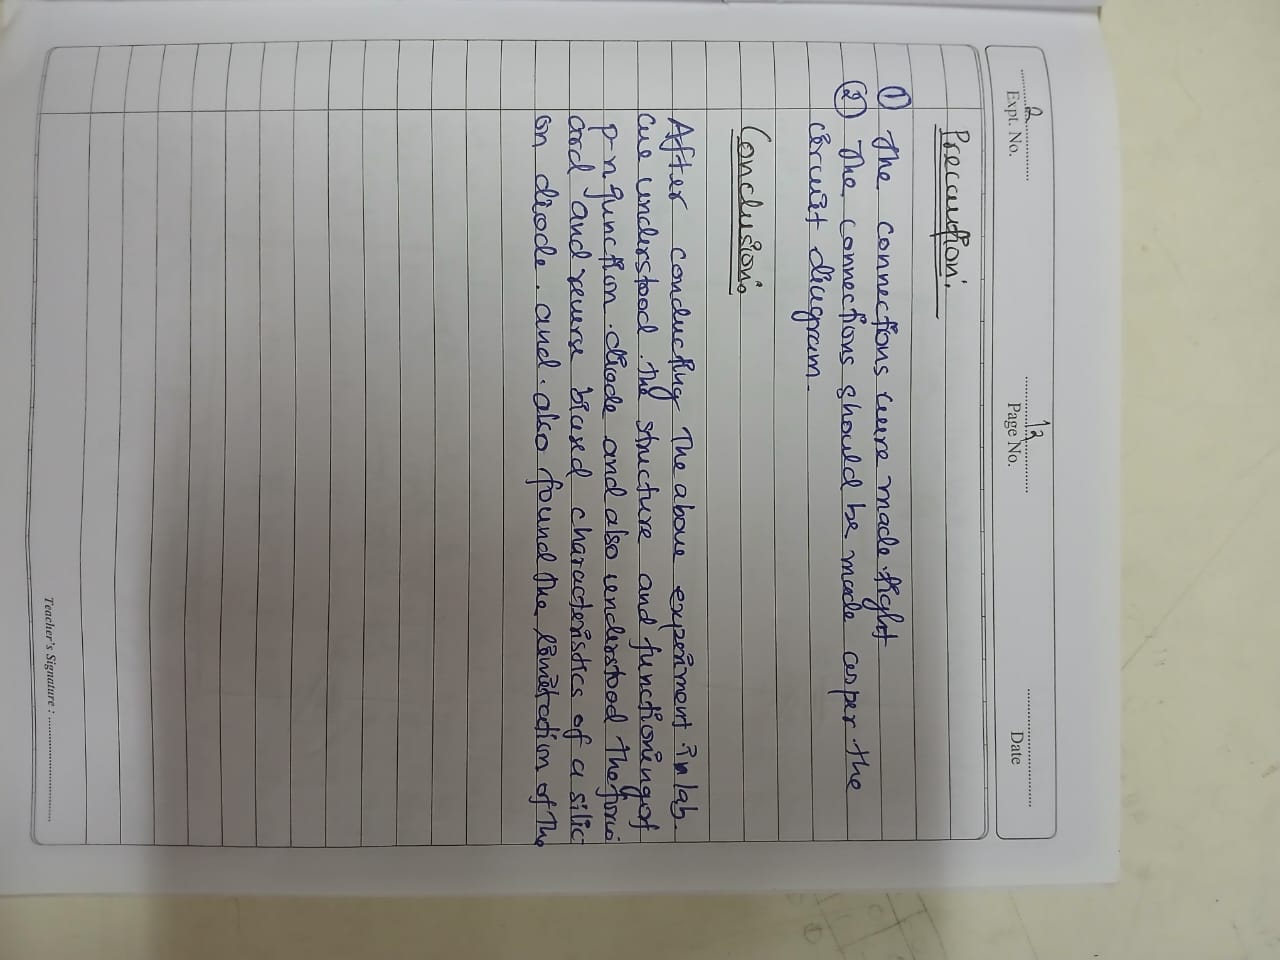 Expt. No. 2
Page No. 12
Date
Precaution:
① The connections were made tight
② The connections should be made asper the
circuit diagram.
Conclusion:
After conducting The above experiment in lab.
we understood the structure and functioning of
p n junction diode and also understood the forw
ard and reverse biased characteristics of a silic
on diode. and. also found the limitation of the
Teacher's Signature :